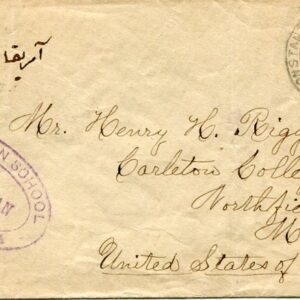 آمریقا
CONSTAN
Mr. Henry H. Rigg
Carleton Colle
Northfi
M
United States of
N SCHOOL